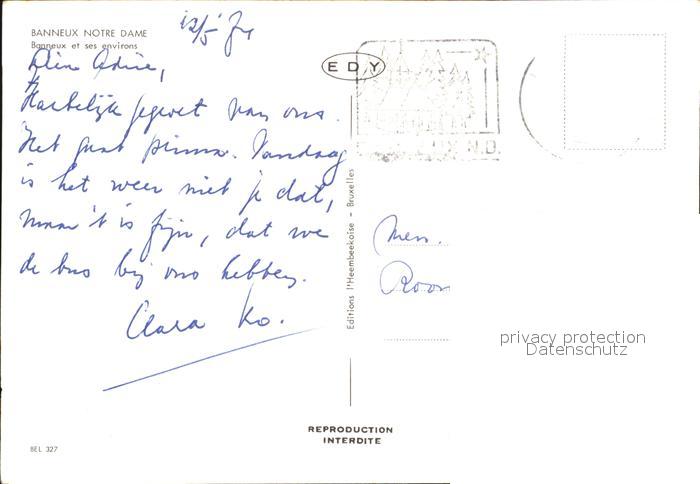 BANNEUX NOTRE DAME
Banneux et ses environs
12/5 '74
Hartelijk gegroet van ons.
Het gaat prima. Vandaag
is het weer niet je dat,
maar 't is fijn, dat we
de bus bij ons hebben.
Clara Ko.
EDY
N.D.
Editions l'Heembeekoise - Bruxelles
Mevr.
Room
privacy protection
Datenschutz
REPRODUCTION
INTERDITE
BEL 327